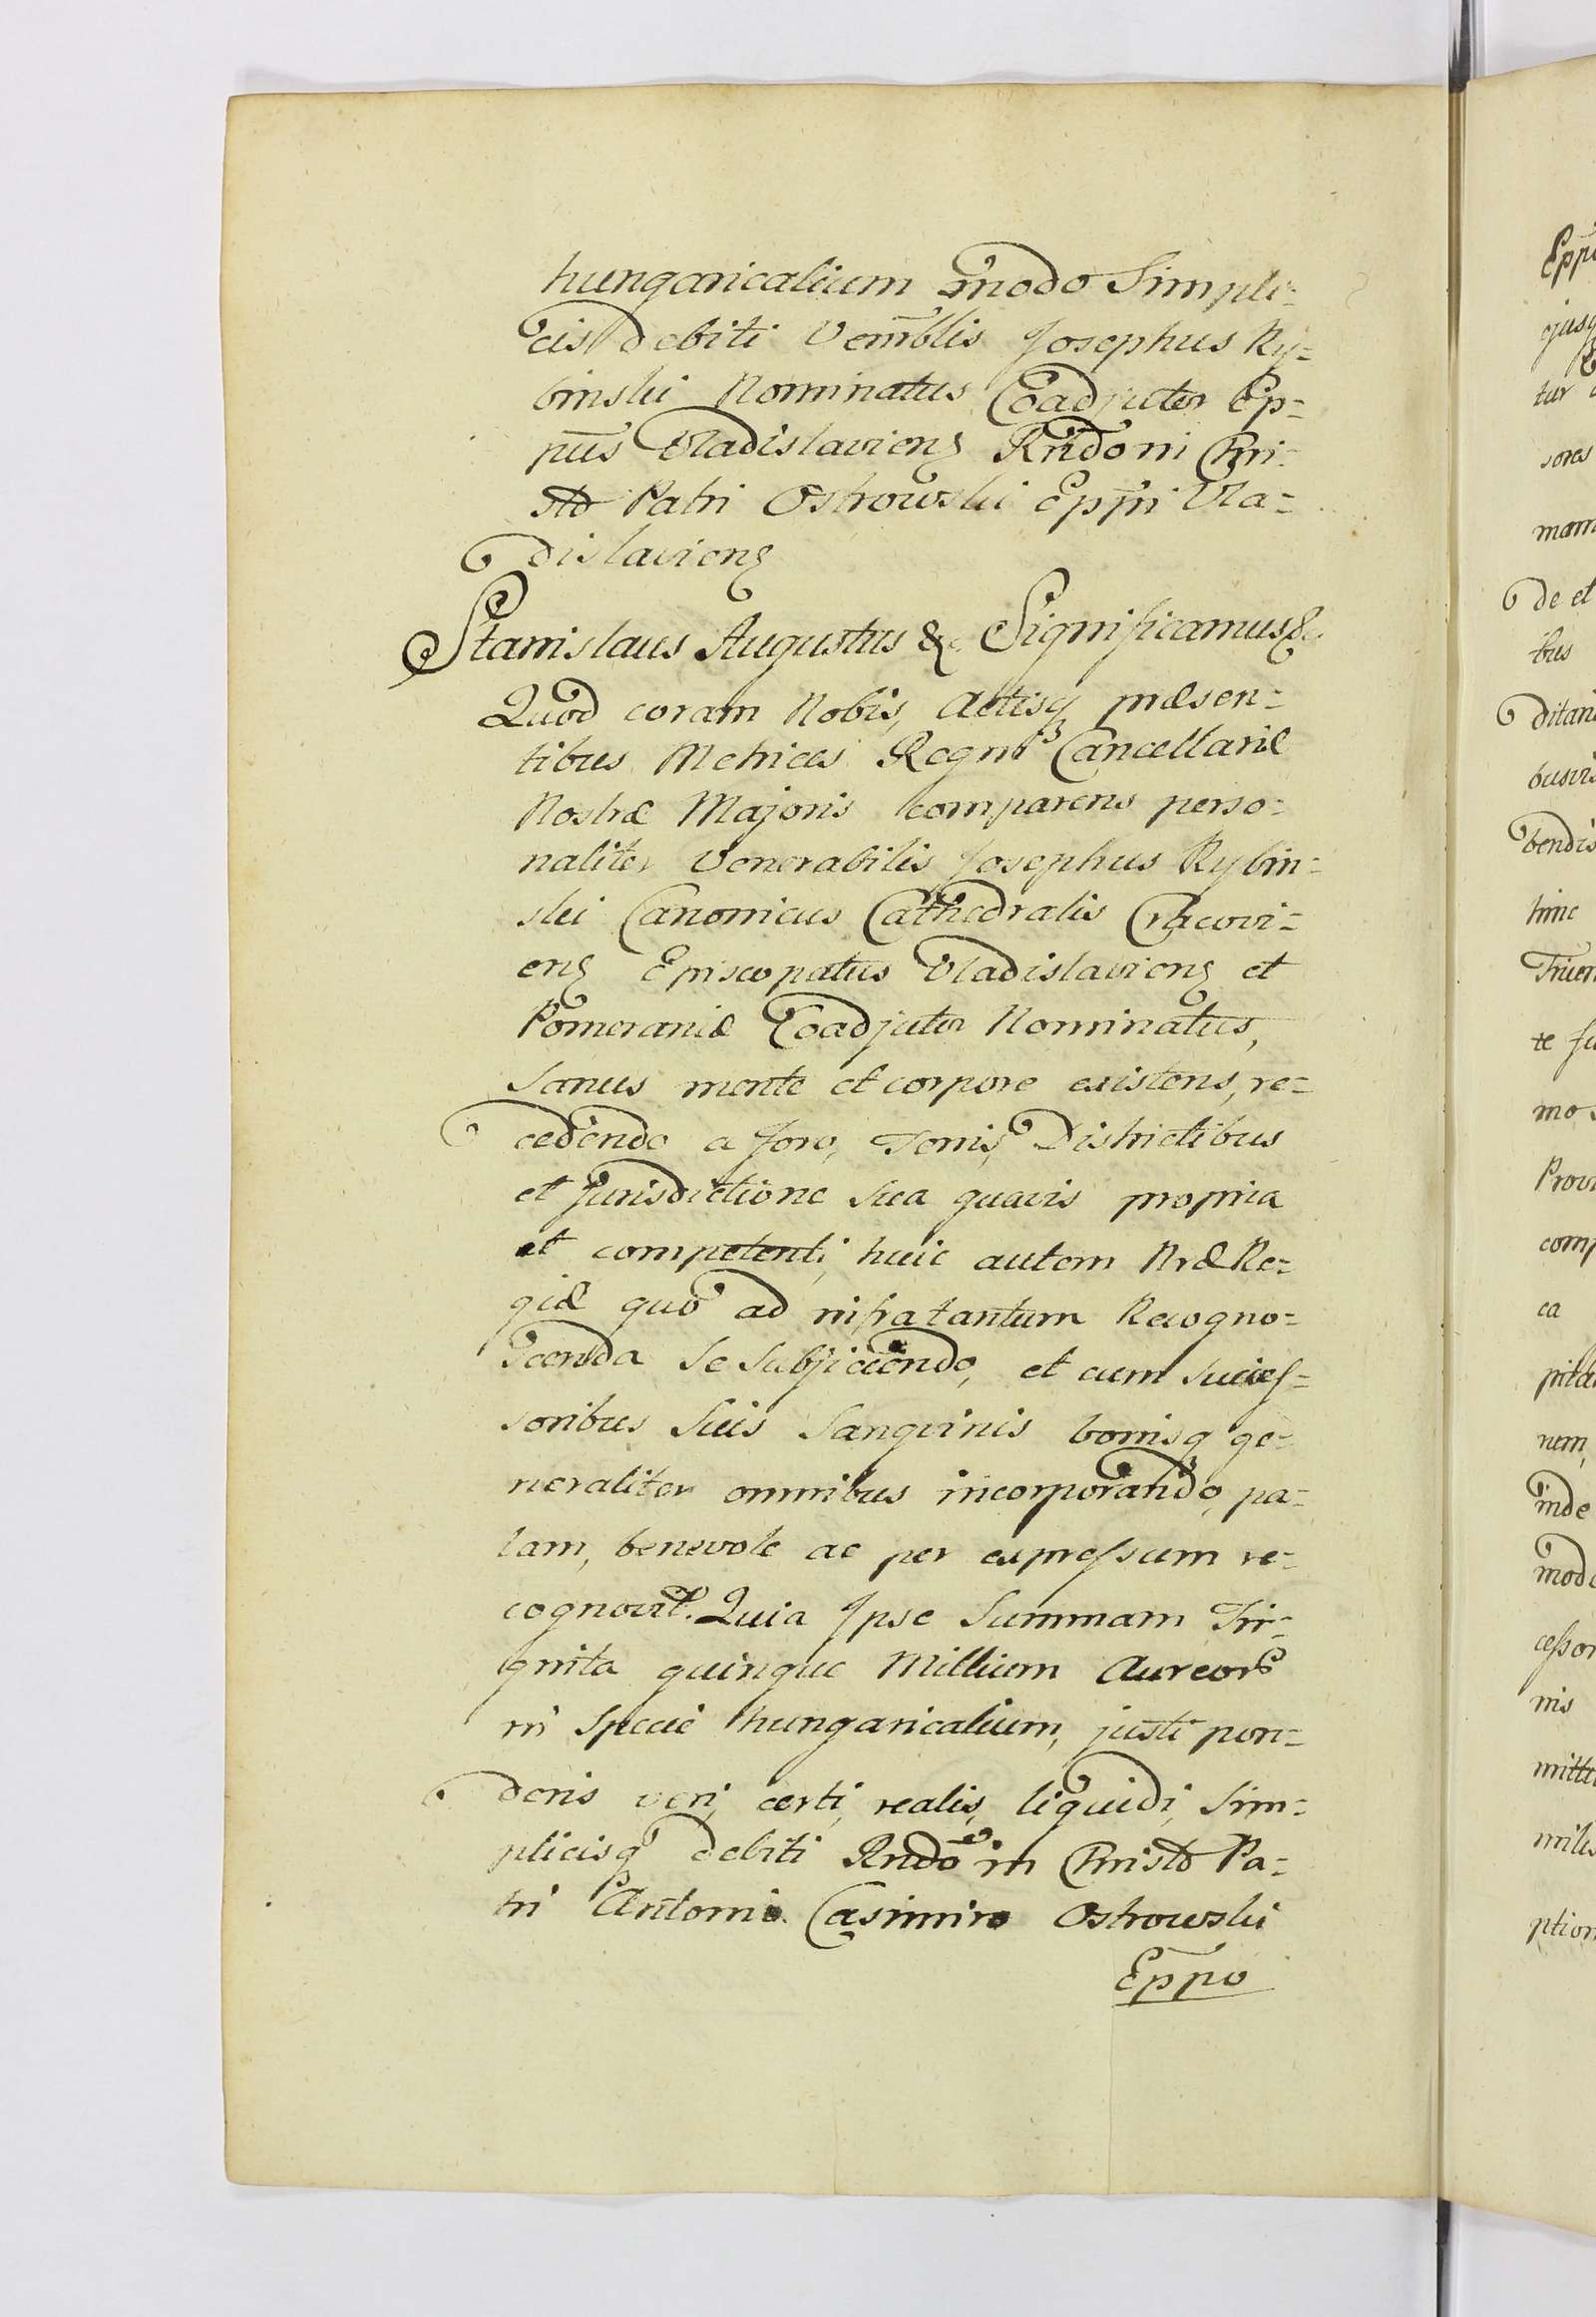 hungaricalium modo Simpli=
cis debiti Venrblis Josephus Ry=
binski Nominatus Coadjutor Ep=
pus Vladislaviens Rndo in Chri=
sto Patri Ostrowski Eppo Vla=
dislaviens
Stanislaus Augustus &c Significamus &c
Quod coram Nobis, Actisq præsen=
tibus Metrices Regni Cancellariæ
Nostræ Majoris comparens perso=
naliter Venerabilis Josephus Rybin=
ski Canonicus Cathedralis Cracovi=
ens Episcopatus Vladislaviens et
Pomeraniæ Coadjutor Nominatus,
Sanus mente et corpore existens, re=
cedendo a foro, Terris, Districtibus
et Jurisdictione Sua quavis propria
et competenti, huic autem Nræ Re=
giæ quo ad infra tantum Recogno=
scenda Se Subjiciendo, et cum Succes=
soribus Suis Sangvinis bonisq ge=
neraliter omnibus incorporando, pa=
lam, benevole ac per expressum re=
cognovit. Quia Ipse Summam Tri=
ginta quinque Millium Aureor
in Specie hungaricalium, justi pon=
deris veri, certi, realis, liquidi, Sim=
plicisq debiti Rndo in Christo Pa=
tri Antonio Casimiro Ostrowski
Eppo
ejusq
tur
sores
mam
de et
bus
ditan
busvis
bendis
hinc
te
mo
Prov
comp
ca
num,
inde
modo
cessor
nis
mitte
milis
ption